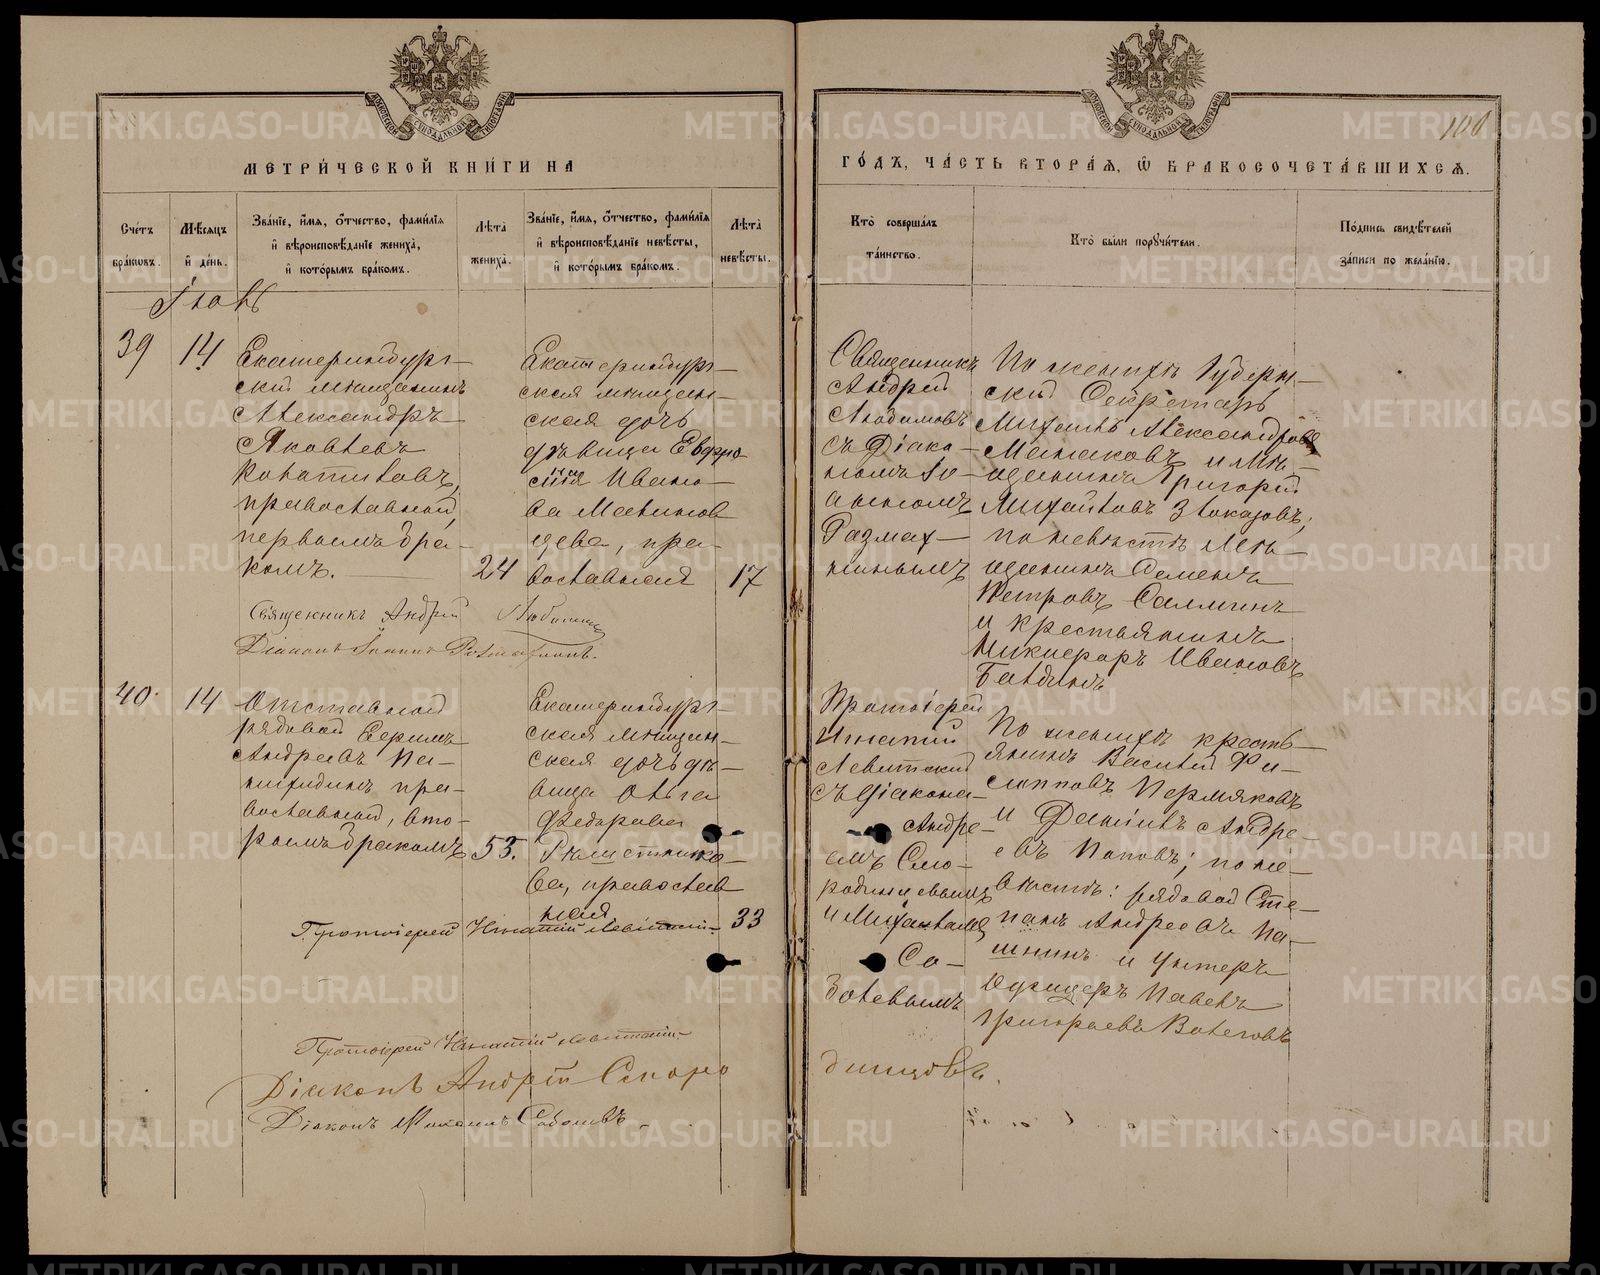 МОСКОВСКОЙ СѴНОДАЛЬНОЙ ТИПОГРАФІИ
МОСКОВСКОЙ СѴНОДАЛЬНОЙ ТИПОГРАФІИ
100
МЕТРИ́ЧЕСКОЙ КНИ́ГИ НА
ГО́ДЪ, ЧА́СТЬ ВТОРА́Ѧ, Ѡ БРАКОСОЧЕТА́ВШИХСѦ.
Сче́тъ бра́ковъ.
Мѣ́сяцъ и де́нь.
Зва́нїе, и́мя, о́тчество, фами́лїя и вѣроисповѣ́данїе жениха̀, и кото́рымъ бра́комъ.
Лѣта̀ жениха̀.
Зва́нїе, и́мя, о́тчество, фами́лїя и вѣроисповѣ́данїе невѣ́сты, и кото́рымъ бра́комъ.
Лѣта̀ невѣ́сты.
Кто̀ соверша́лъ та́инство.
Кто̀ бы́ли порꙋчи́тели.
По́дпись свидѣ́телей за́писи по жела́нїю.
Іюль
39
14
Екатеринбург-
скій мѣщанинъ
Александръ
Яковлевъ
Коноплловъ,
православный,
первымъ бра-
комъ.
24
Екатеринбург-
ская мѣщан-
ская дочь
дѣвица Евфро
синія Ивано-
ва
православная
17
Священникъ
Андрей
Любимовъ
съ Діако-
номъ Іо-
анномъ
Размах-
нинымъ
По женихѣ Губерн-
скій Секретарь
Михаилъ Александровъ
Малаховъ и мѣ-
щанинъ Григорій
Михайловъ Злоказовъ;
по невѣстѣ мѣ-
щанинъ Семенъ
Петровъ Салминъ
и крестьянинъ
Никифоръ Ивановъ
Балдинъ
Священникъ Андрей Любимовъ
Діаконъ Іоаннъ Размахнинъ.
40
14
Отставной
рядовой Ефимъ
Андреевъ Па-
нифидинъ, пра-
вославный, вто-
рымъ бракомъ
53.
Екатеринбург-
ская мѣщан-
ская дочь дѣ-
вица Ольга
Федорова
православ
ная
33
Протоіерей
Игнатій
Левитскій
съ діакона-
Андре-
емъ Смо-
родинцевымъ
и Михаиломъ
Со-
болевымъ
По женихѣ кресть-
янинъ Василій Фи-
липповъ Пермяковъ
и Даніилъ Андре-
евъ Поповъ; по не-
вѣстѣ: рядовой Сте-
панъ Андреевъ Па-
шнинъ и Унтеръ
Офицеръ Павелъ
Григорьевъ Волеговъ
Протоіерей Игнатій Левитскій.
Протоіерей Игнатій Левитскій.
Діаконъ Андрей Сморо
динцовъ.
Діаконъ Михаилъ Соболевъ.